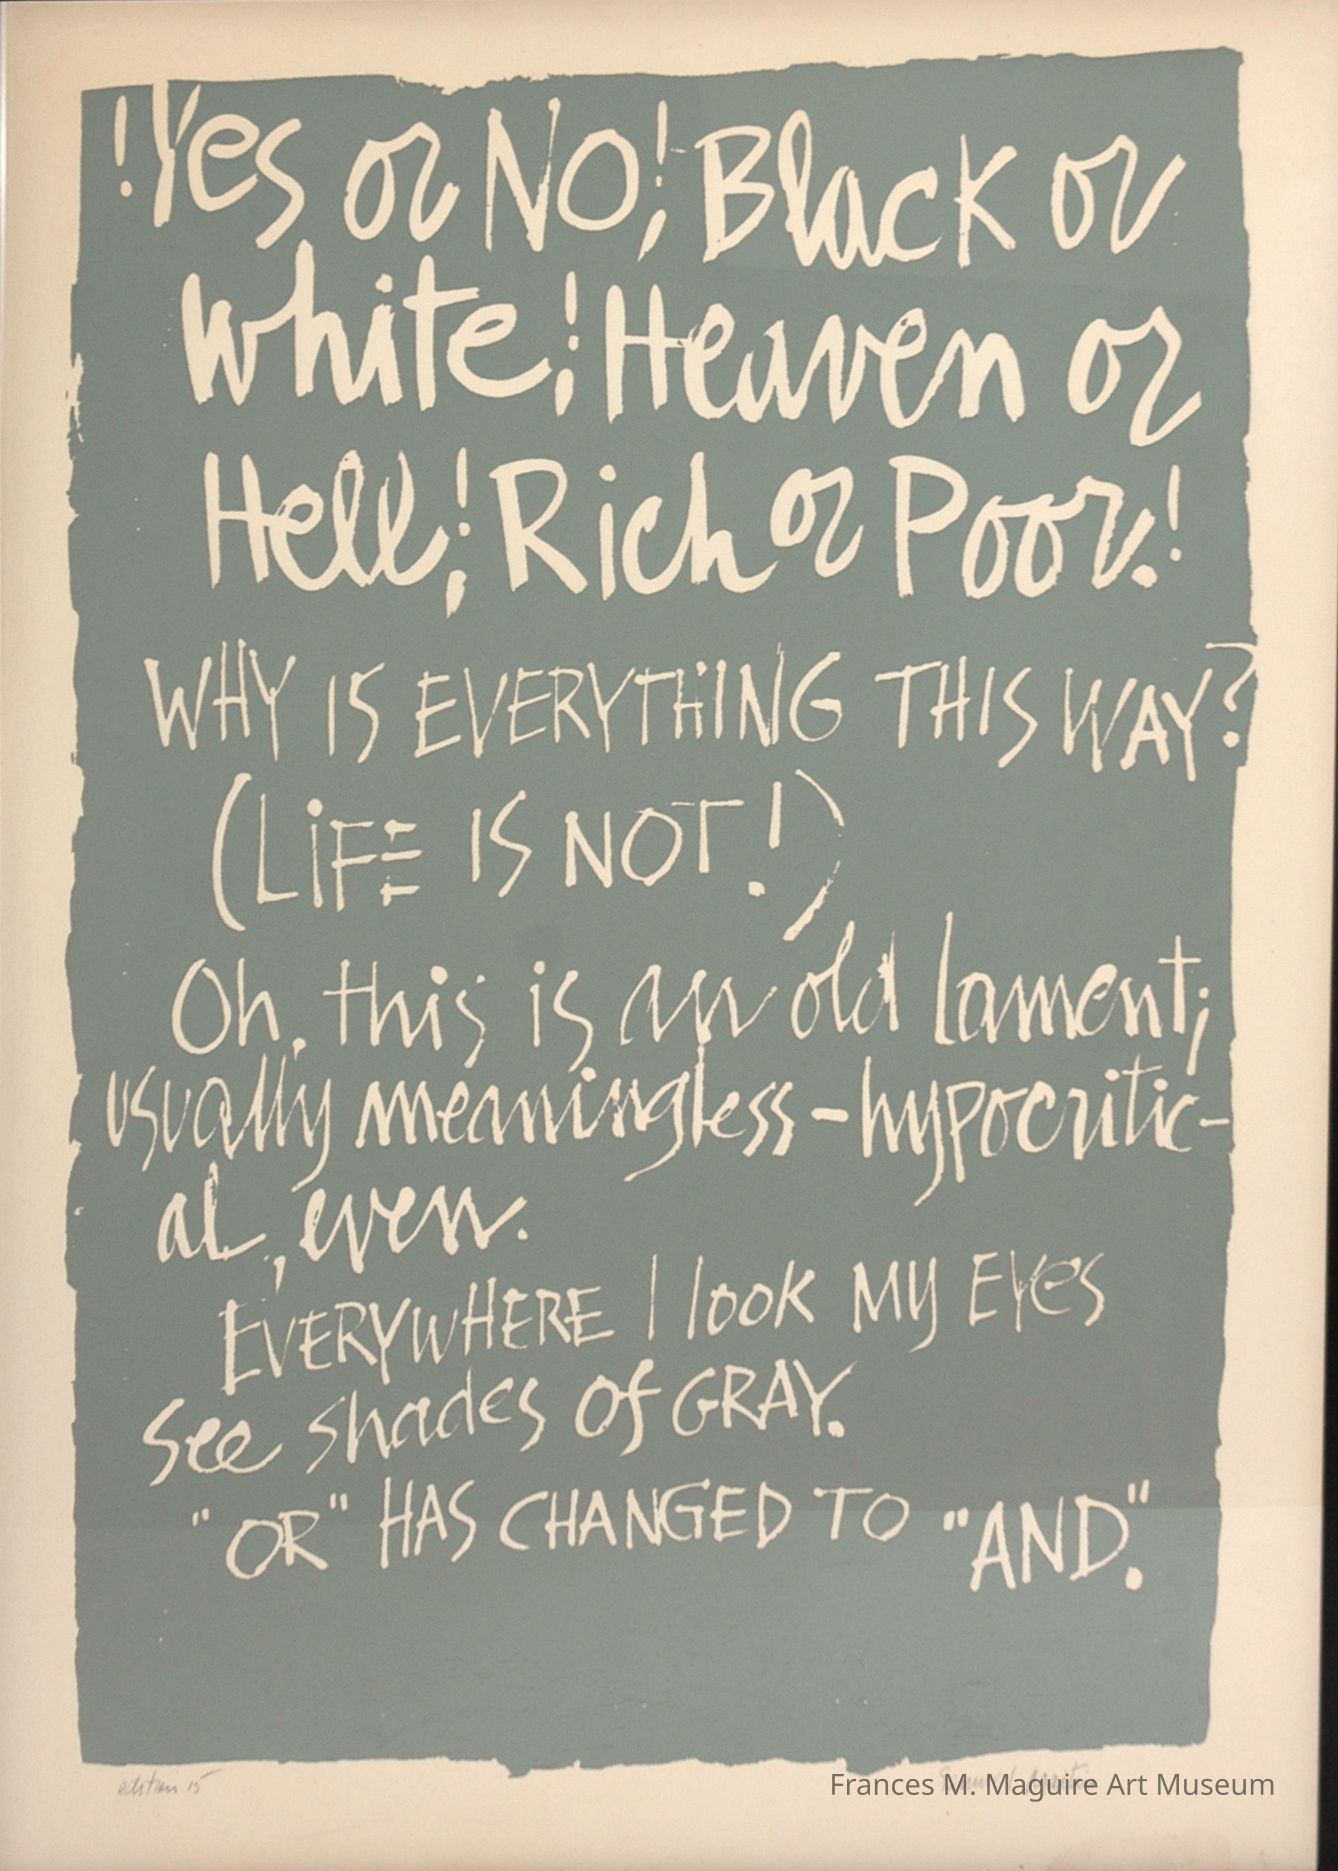 !Yes or NO,! Black or
White,! Heaven or
Hell,! Rich or Poor.!
WHY IS EVERYTHING THIS WAY?
(LiFE IS NOT!)
Oh, this is an old lament;
usually meaningless - hypocritic-
al, even.
EVERYWHERE I look MY EYes
see shades of GRAY.
"OR" HAS CHANGED TO "AND."
edition 15
Frances M. Maguire Art Museum